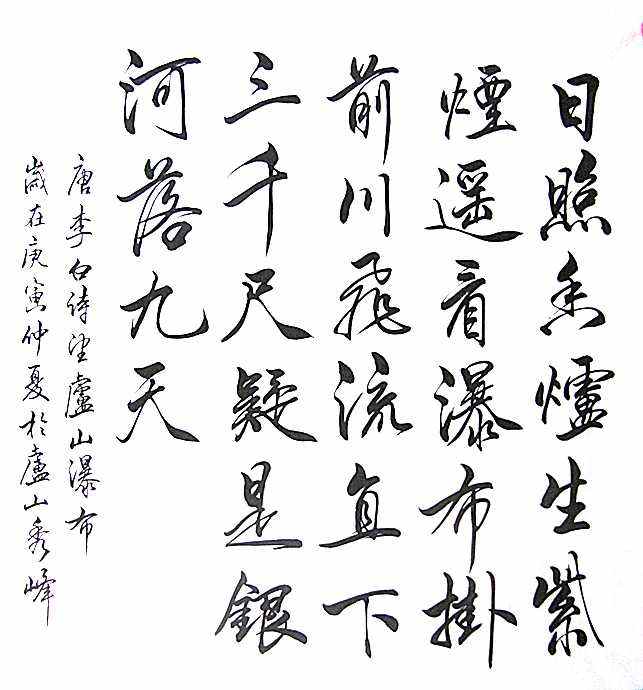 日照香爐生紫
煙遥看瀑布掛
前川飛流直下
三千尺疑是銀
河落九天
唐李白詩望廬山瀑布
歲在庚寅仲夏於廬山秀峰